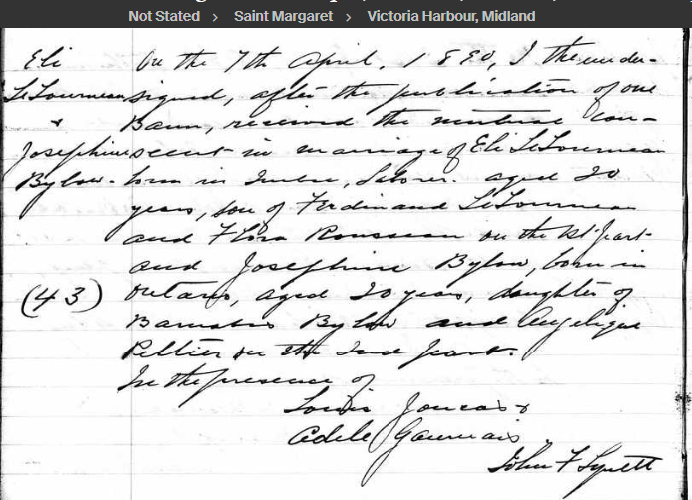 Not Stated > Saint Margaret > Victoria Harbour, Midland
Eli
LeTourneau
&
Josephine
Bylow.
(43)
On the 7th April, 1890, I the under-
signed, after the publication of one
Bann, received the mutual con-
sent in marriage of Eli LeTourneau
born in Quebec, Laborer. aged 20
years, son of Ferdinand LeTourneau
and Flora Rousseau on the 1st part
and Josephine Bylow, born in
Ontario, aged 20 years, daughter of
Barnabas Bylow and Angelique
Peltier on the 2nd part.
In the presence of
Louis Joncas &
Adele Gauvrais
John F Lynett